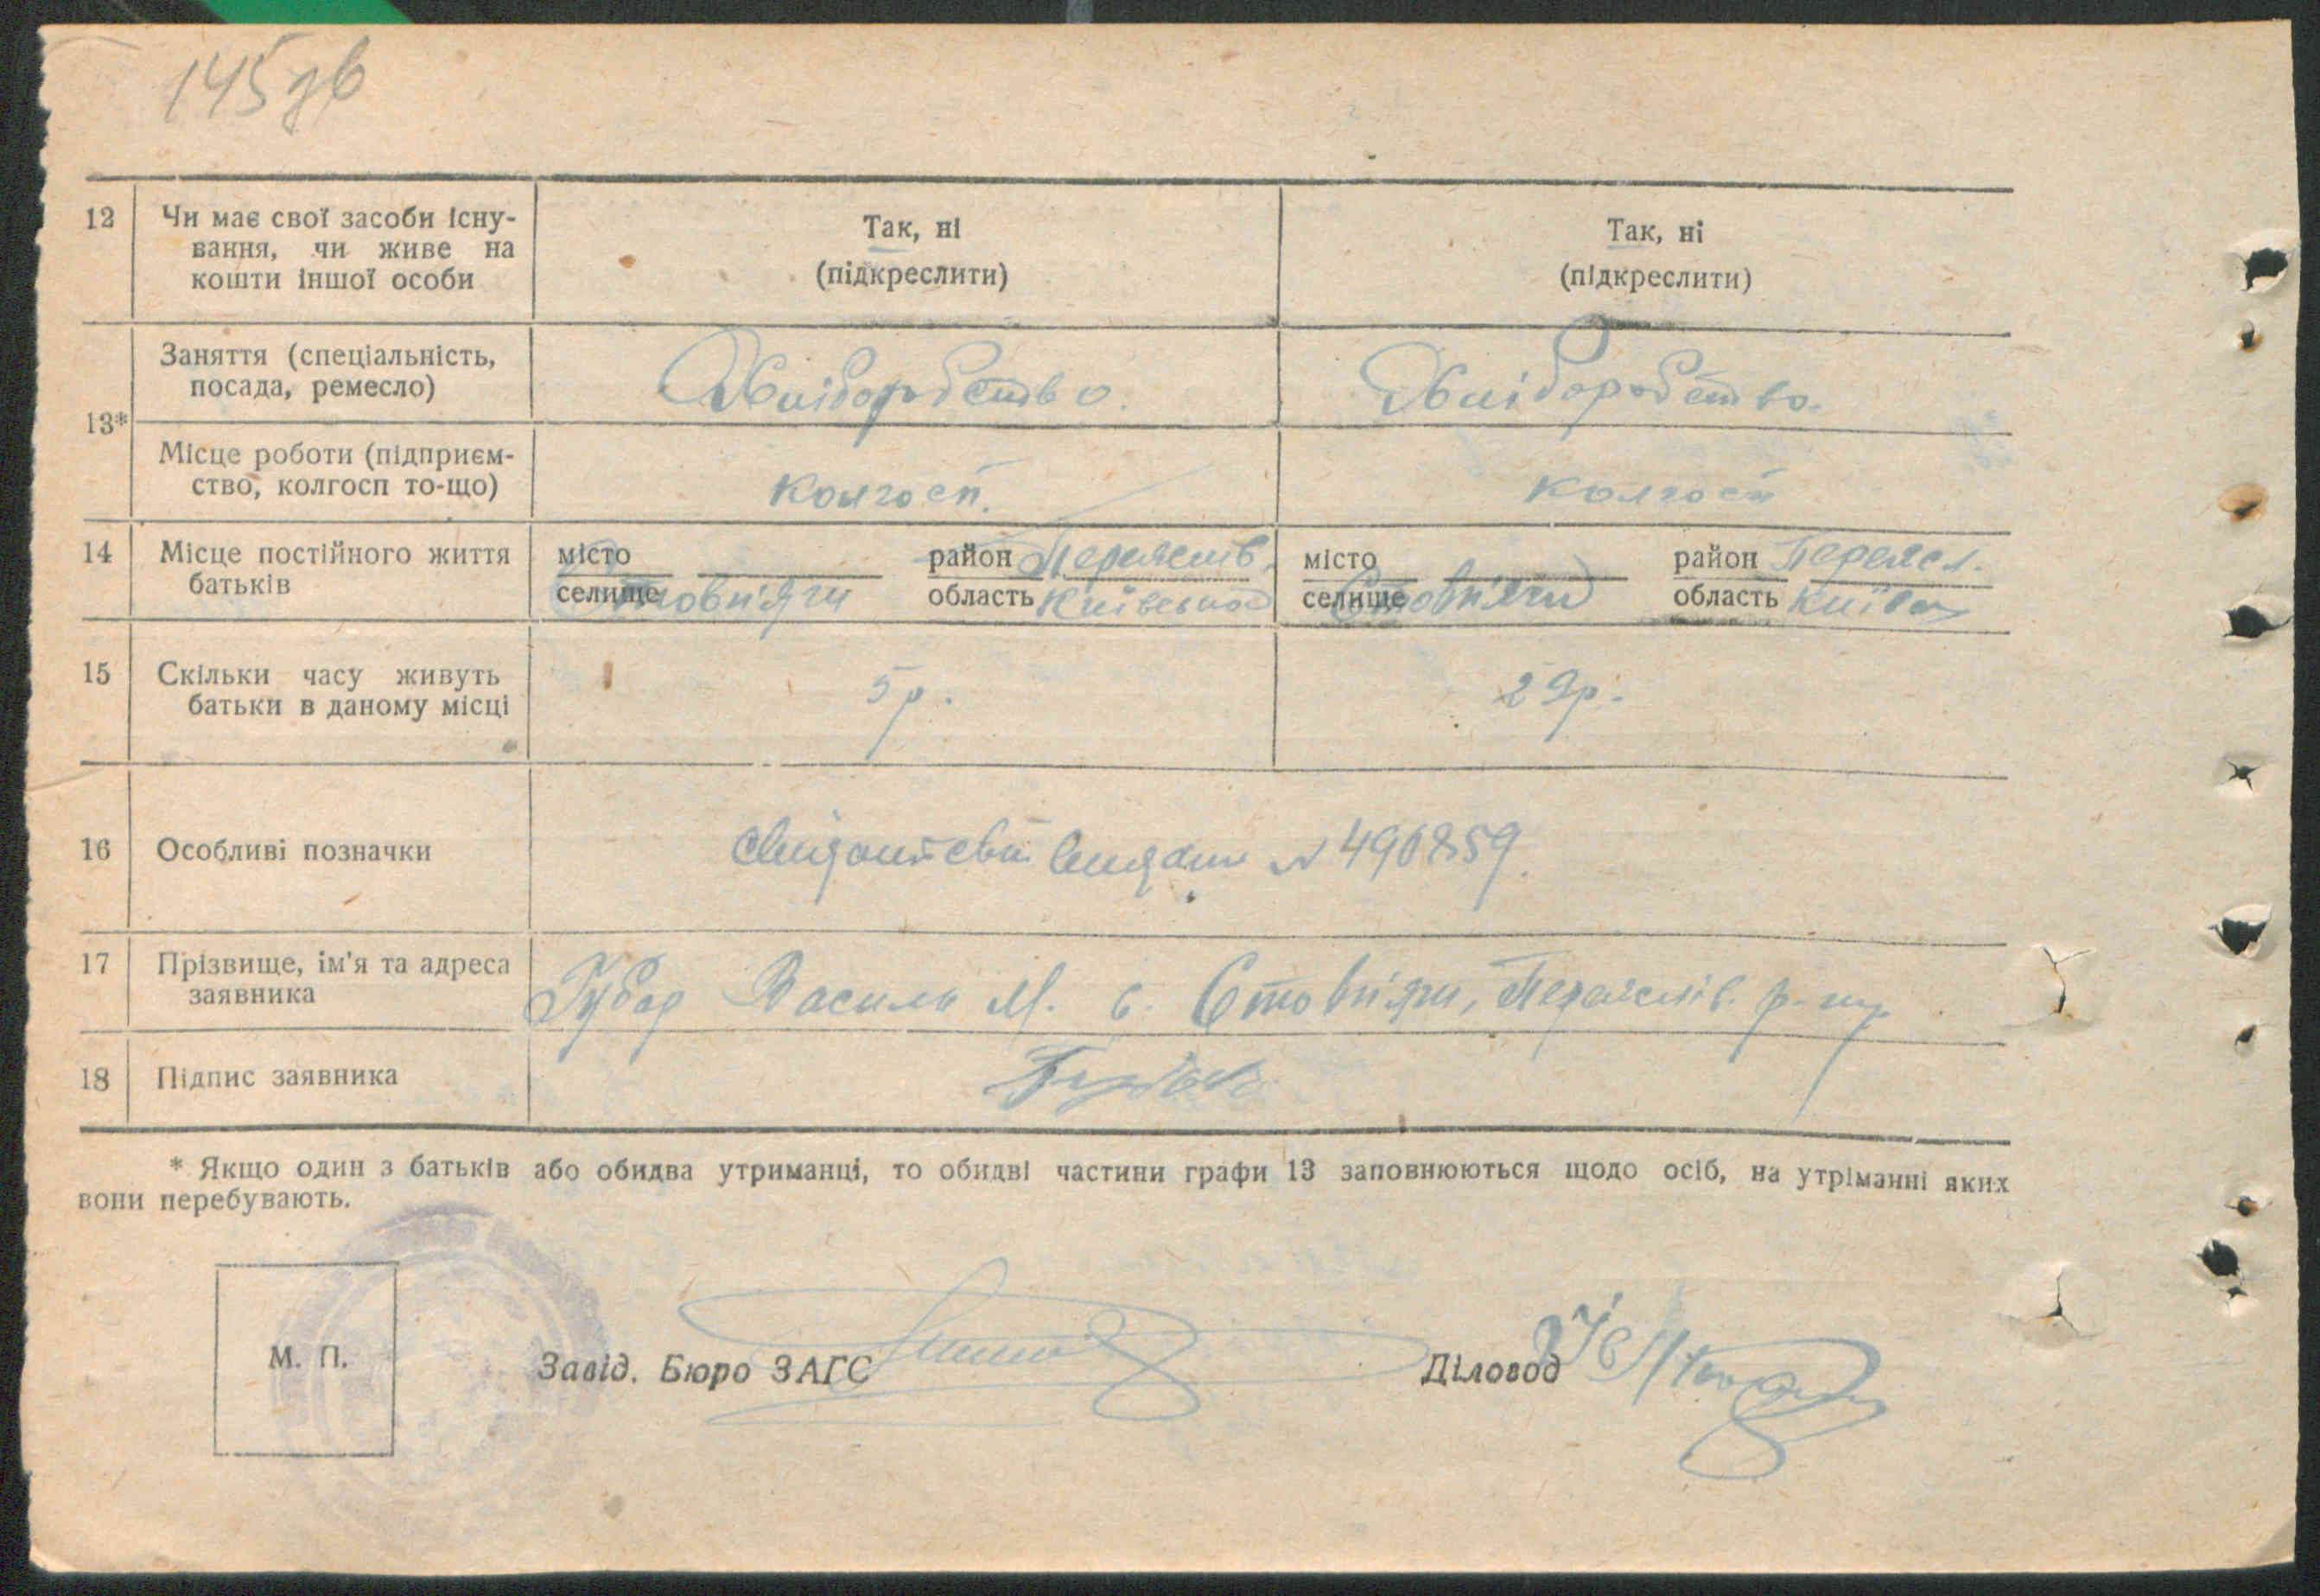 145 зв
12 Чи має свої засоби існу-
вання, чи живе на
кошти іншої особи
Так, ні
(підкреслити)
Так, ні
(підкреслити)
13*
Заняття (спеціальність,
посада, ремесло)
Хліборобство.
Хліборобство.
Місце роботи (підприєм-
ство, колгосп то-що)
Колгосп.
Колгосп
14 Місце постійного життя
батьків
місто
селище Стовп'яги
район Переяслів.
область Київської
місто
селище Стовп'яги
район Переясл.
область Київс
15 Скільки часу живуть
батьки в даному місці
5 р.
29 р.
16 Особливі позначки
видано № 490859.
17 Прізвище, ім'я та адреса
заявника
Губар Василь М. с. Стовп'яги, Переяслів. р-ну
18 Підпис заявника
* Якщо один з батьків або обидва утриманці, то обидві частини графи 13 заповнюються щодо осіб, на утріманні яких
вони перебувають.
М. П.
Завід. Бюро ЗАГС
Діловод